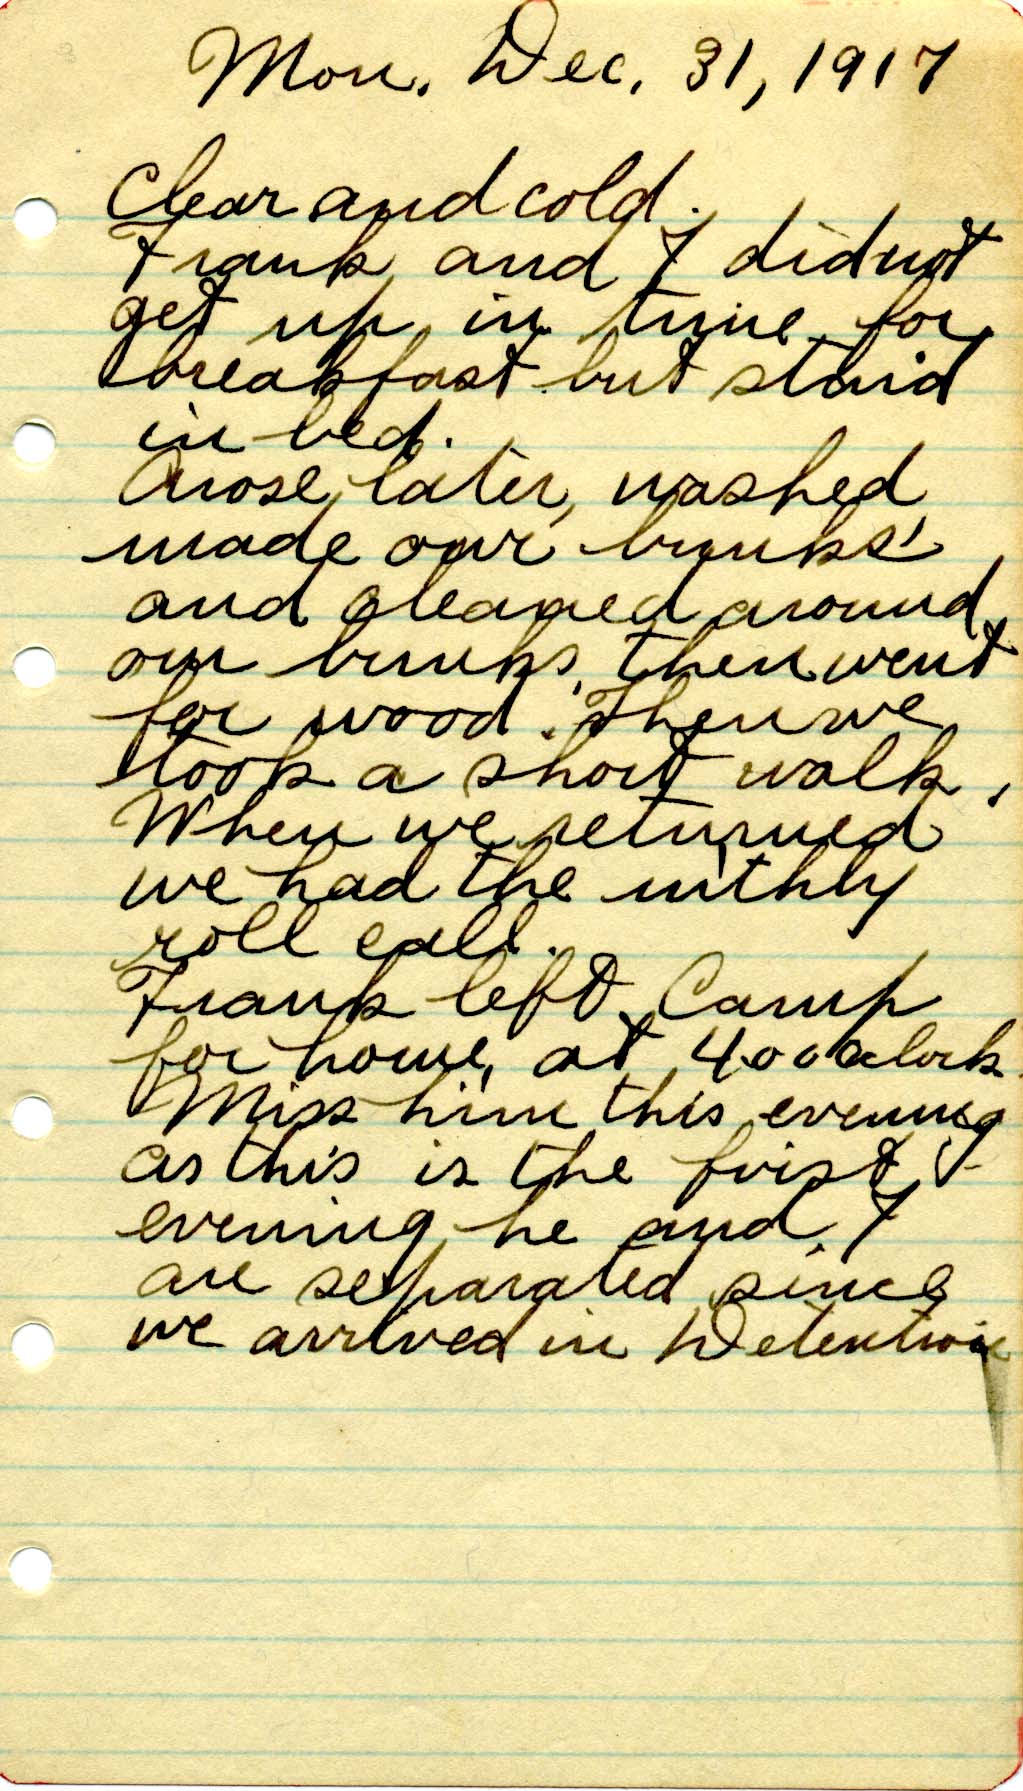 Mon. Dec. 31, 1917
Clear and cold.
Frank and I did not
get up in time for
breakfast but staid
in bed.
Arose later, washed
made our bunks
and cleaned around
our bunks, then went
for wood. Then we
took a short walk.
When we returned
we had the mthly
roll call.
Frank left Camp
for home, at 4.00 oclock.
Miss him this evening
as this is the first
evening he and I
are separated since
we arrived in Detention